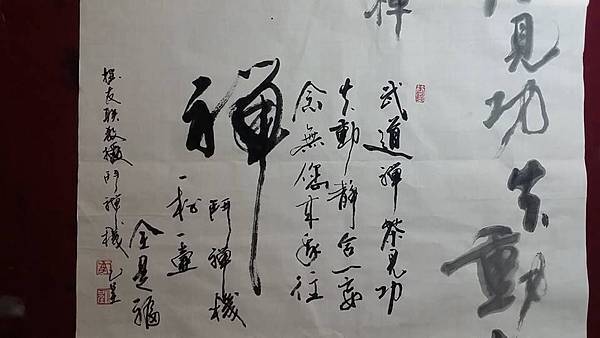 見功夫動
禪
武道禪茶見功
夫動靜合一妄
念無您來我往
禪
鬥禪機
一杯一壺
全是福
友联教授鬥禪機